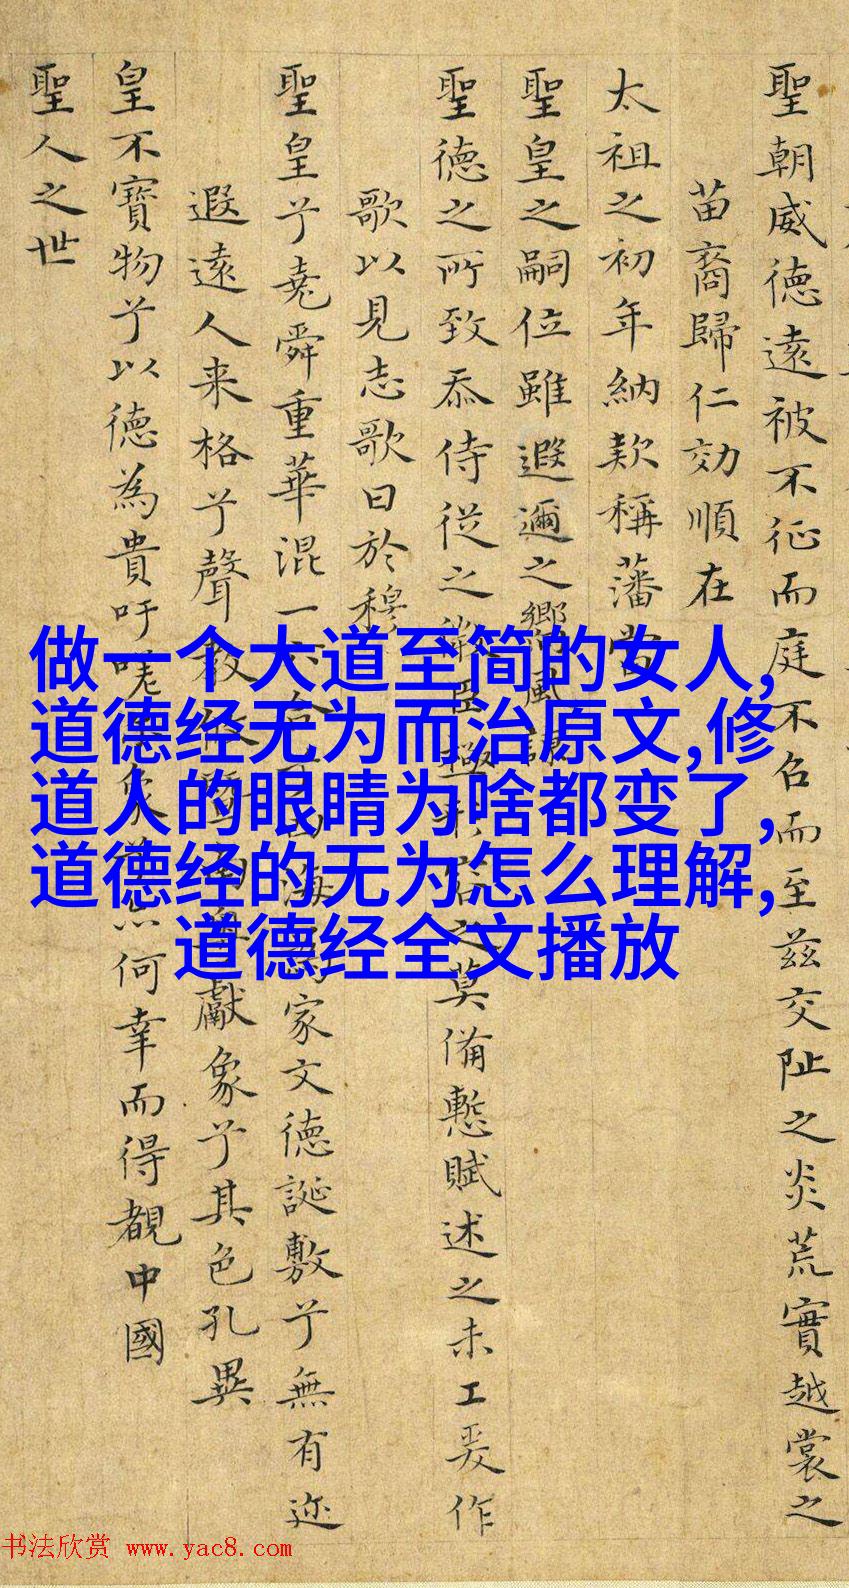 聖朝威德遠被不征而庭不召而至茲交阯之炎荒實越裳之
苗裔歸仁効順在
太祖之初年納款稱藩當
聖皇之嗣位雖遐邇之嚮風
聖德之所致忝侍從之微臣極形容之莫備慙賦述之未工爰作
歌以見志歌曰於穆
聖皇兮堯舜重華混一六合兮四海為家文德誕敷兮無有迩
遐遠人来格兮聲教獻象兮其色孔異
皇不寶物兮以德為貴吁嗟何幸而得覩中國
聖人之世
做一个大道至简的女人,
道德经无为而治原文,修
道人的眼睛为啥都变了,
道德经的无为怎么理解,
道德经全文播放
书法欣赏 www.yac8.com